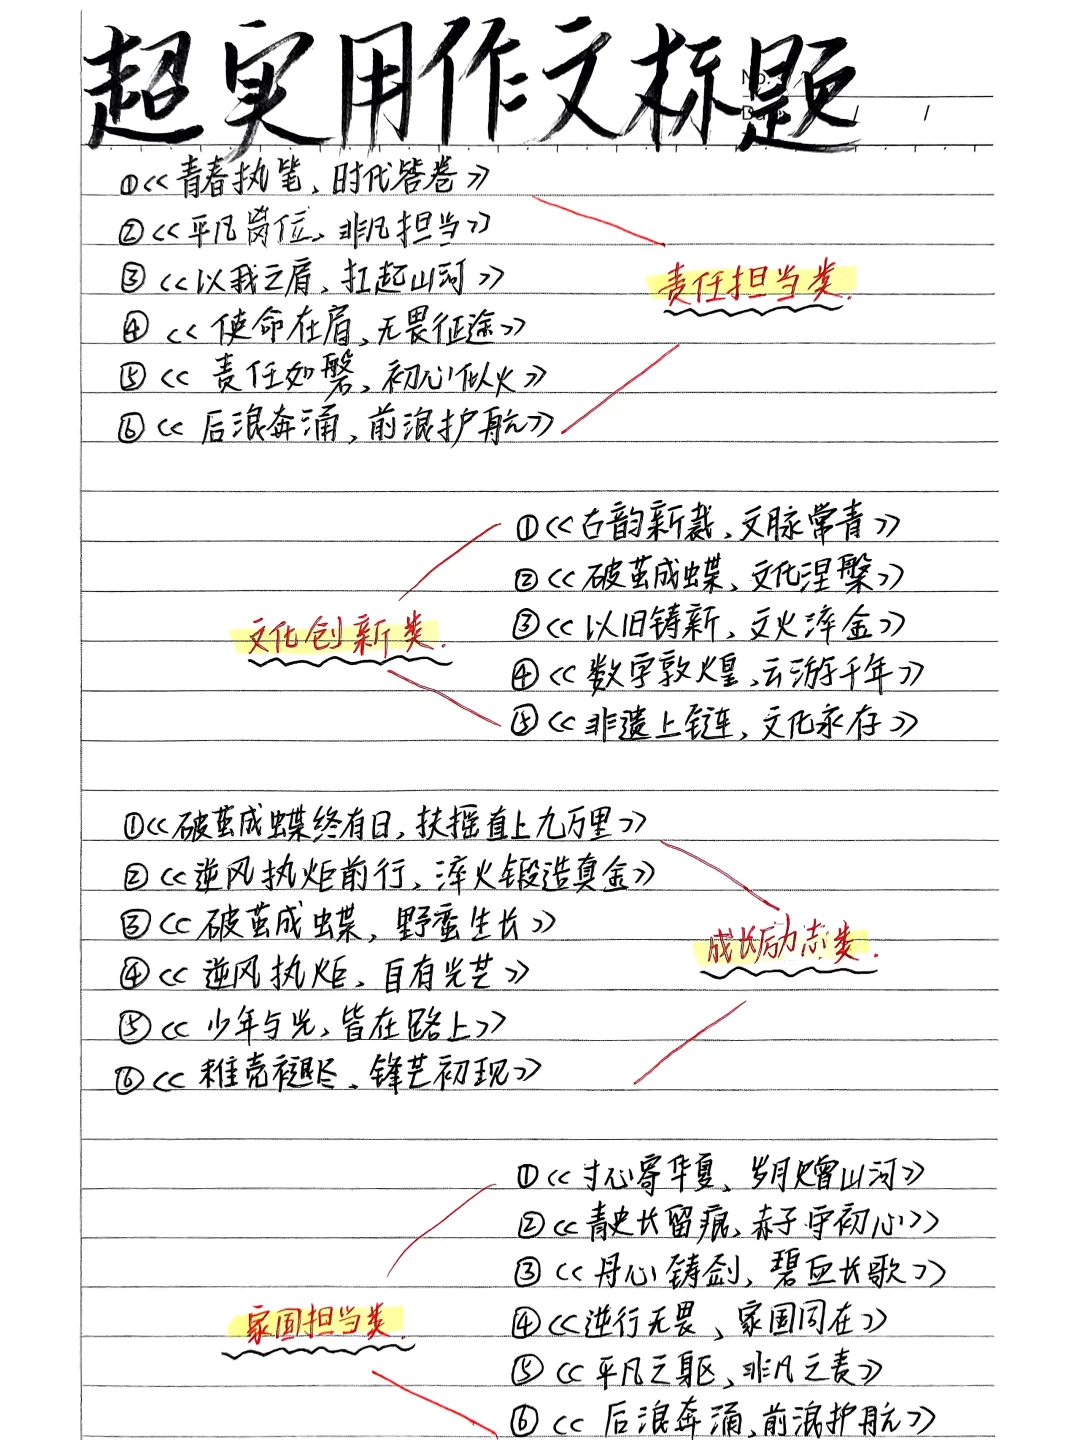 超实用作文标题
No.
①《青春执笔，时代答卷》
②《平凡岗位，非凡担当》
③《以我之肩，扛起山河》
责任担当类.
④《使命在肩，无畏征途》
⑤《责任如磐，初心似火》
⑥《后浪奔涌，前浪护航》
①《古韵新裁，文脉常青》
②《破茧成蝶，文化涅槃》
文化创新类.
③《以旧铸新，文火淬金》
④《数字敦煌，云游千年》
⑤《非遗上链，文化永存》
①《破茧成蝶终有日，扶摇直上九万里》
②《逆风执炬前行，淬火锻造真金》
③《破茧成蝶，野蛮生长》
成长励志类.
④《逆风执炬，自有光芒》
⑤《少年与光，皆在路上》
⑥《稚壳褪尽、锋芒初现》
①《寸心寄华夏、岁月赠山河》
②《青史长留痕，赤子守初心》
③《丹心铸剑，碧血长歌》
家国担当类.
④《逆行无畏、家国同在》
⑤《平凡之躯，非凡之责》
⑥《后浪奔涌，前浪护航》